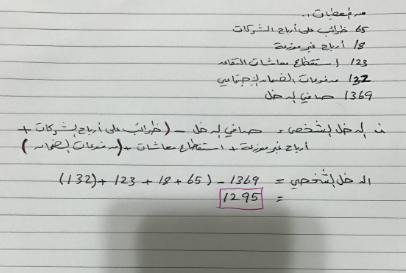 من المعطيات..
65 ضرائب على أرباح الشركات
18 أرباح غير موزعة
123 استقطاع معاشات التقاعد
132 مدفوعات الضمان الاجتماعي
1369 صافي الدخل
الدخل الشخصي = صافي الدخل - (ضرائب على أرباح الشركات +
أرباح غير موزعة + استقطاع معاشات) + (مدفوعات الضمان)
الدخل الشخصي = 1369 - (65 + 18 + 123) + (132)
= 1295